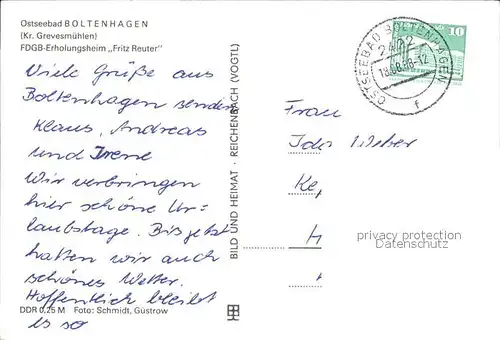 Ostseebad BOLTENHAGEN
(Kr. Grevesmühlen)
FDGB-Erholungsheim „Fritz Reuter"
Viele Grüße aus
Boltenhagen senden
Klaus, Andreas
und Irene
Wir verbringen
hier schöne Ur=
laubstage. Bis jetzt
hatten wir auch
schönes Wetter.
Hoffentlich bleibt
es so
DDR 0,25 M Foto: Schmidt, Güstrow
BILD UND HEIMAT · REICHENBACH (VOGTL)
OSTSEEBAD BOLTENHAGEN
2422
f
10
Frau
Ida Weber
Ke
H
privacy protection
Datenschutz